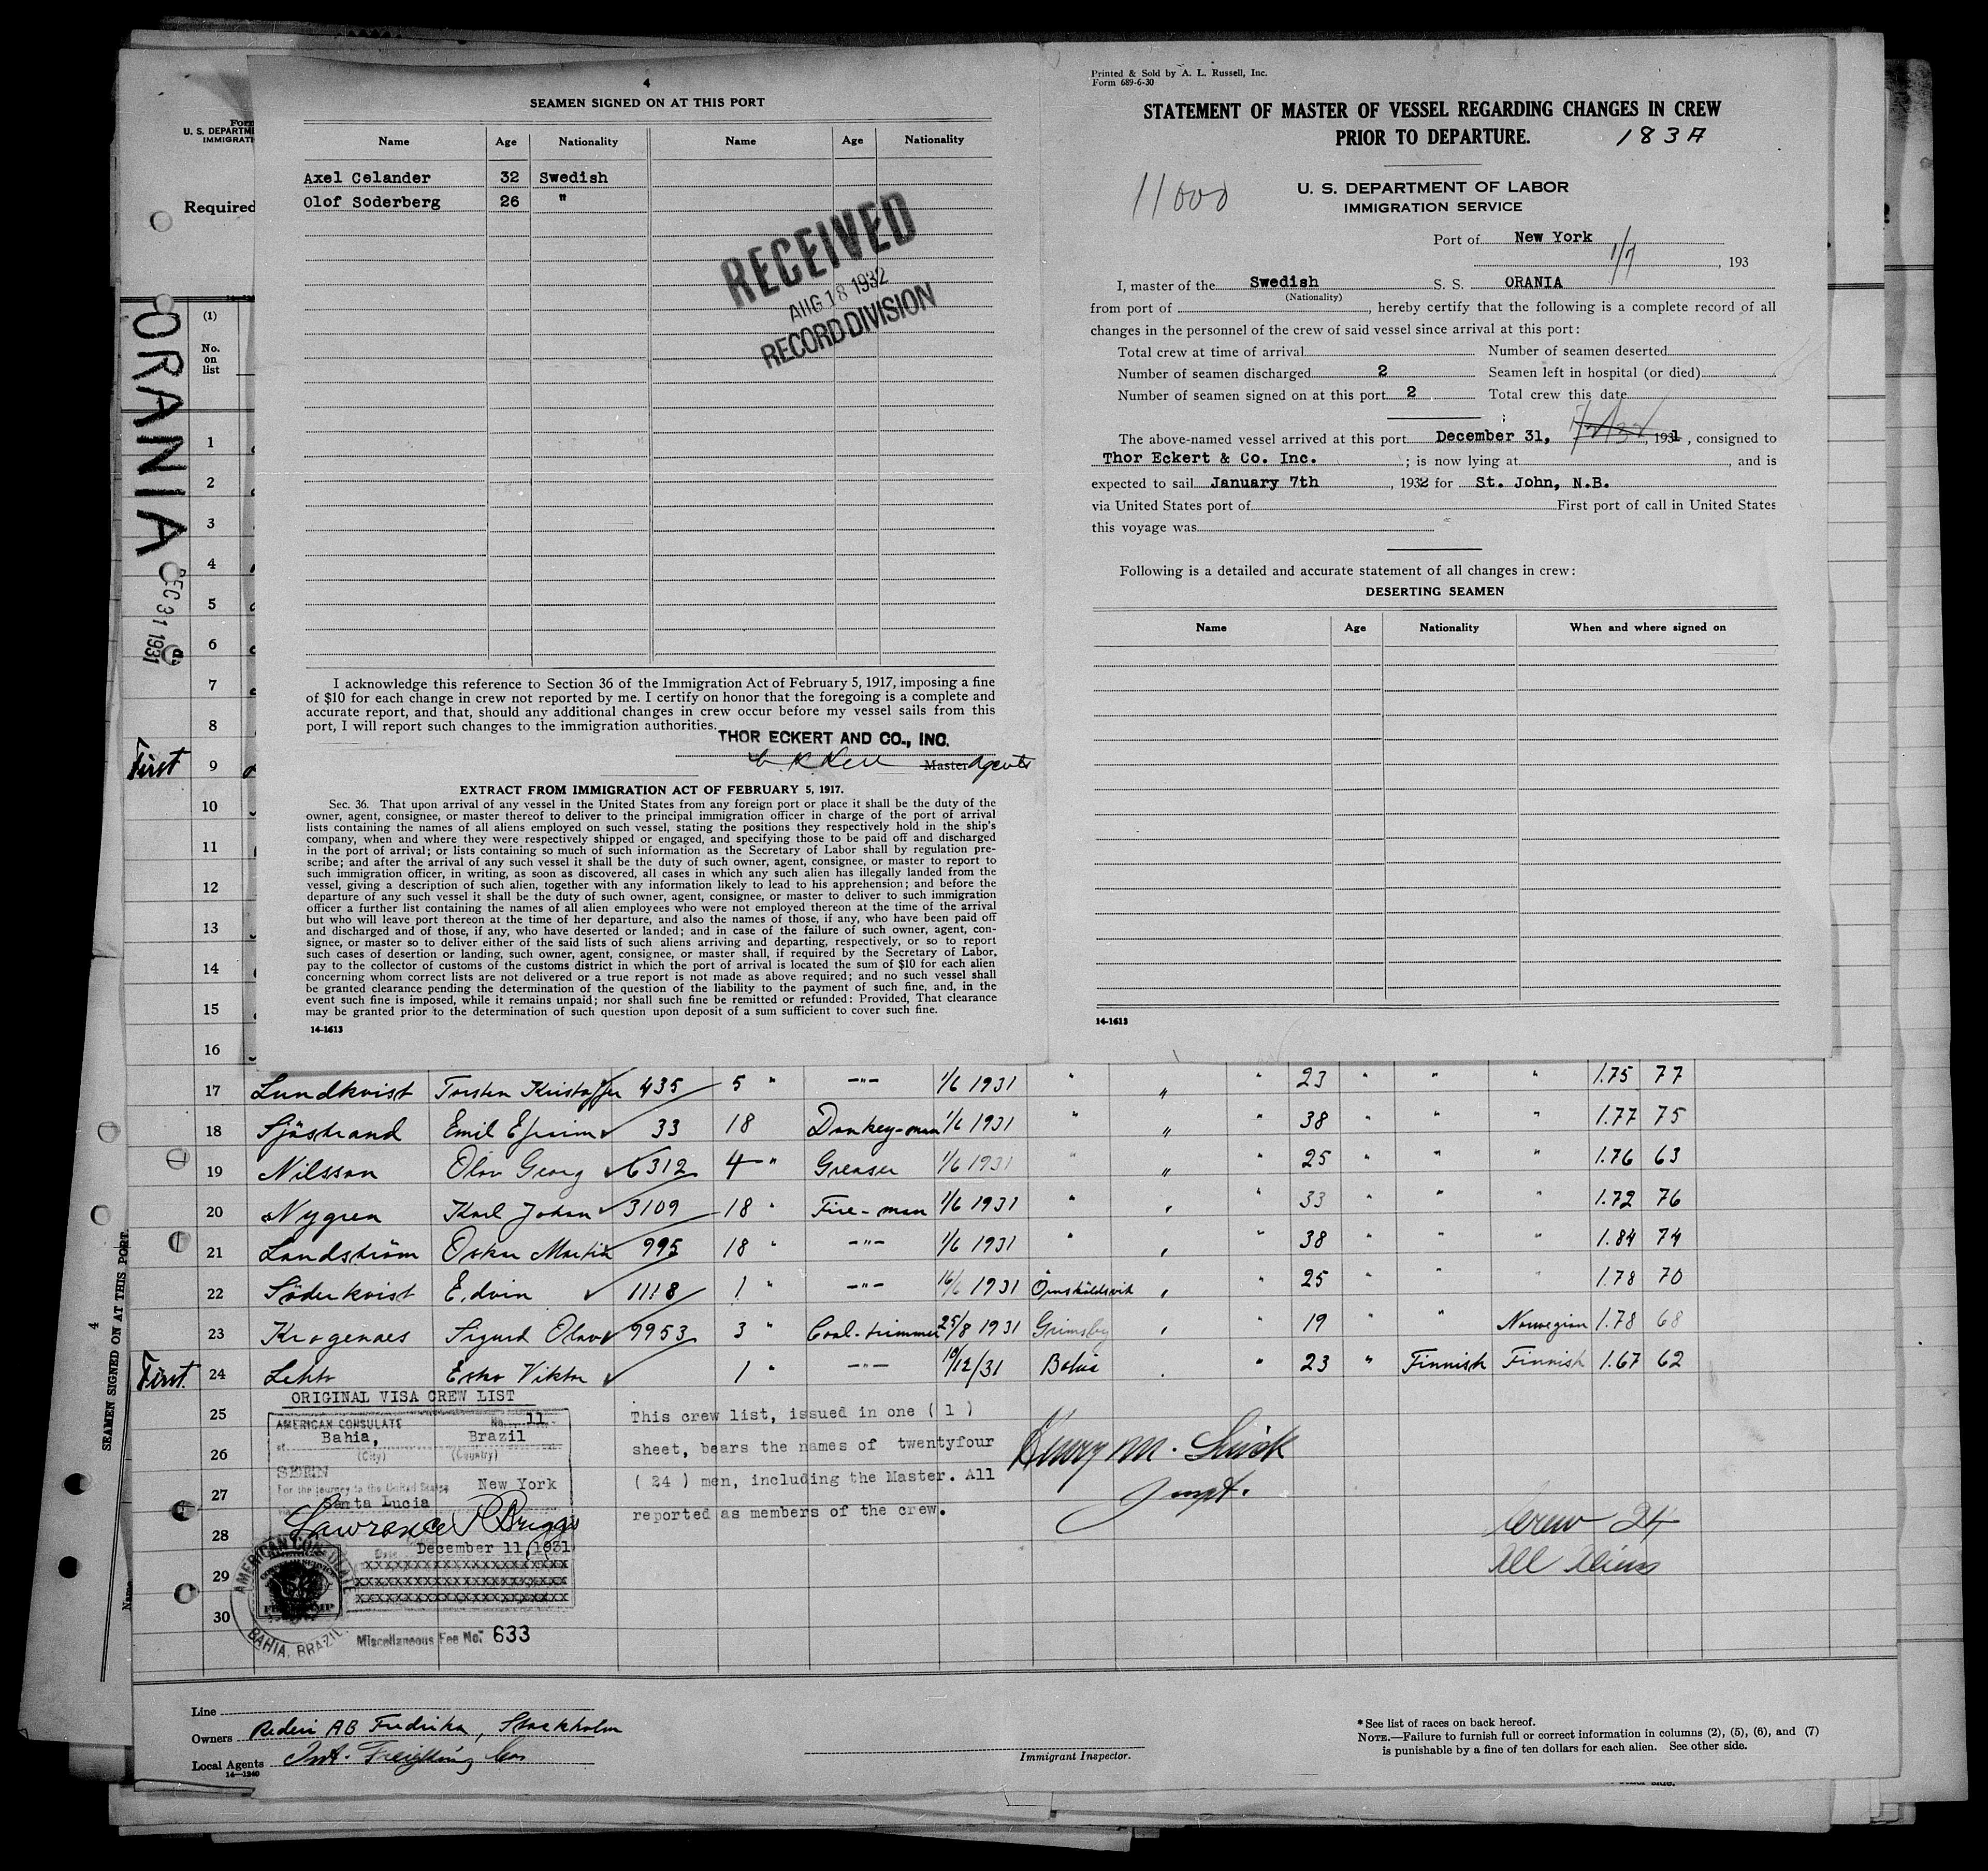 4
SEAMEN SIGNED ON AT THIS PORT
Name Age Nationality Name Age Nationality
Axel Celander 32 Swedish
Olof Soderberg 26 "
RECEIVED
AUG 18 1932
RECORD DIVISION
I acknowledge this reference to Section 36 of the Immigration Act of February 5, 1917, imposing a fine
of $10 for each change in crew not reported by me. I certify on honor that the foregoing is a complete and
accurate report, and that, should any additional changes in crew occur before my vessel sails from this
port, I will report such changes to the immigration authorities.
THOR ECKERT AND CO., INC.
Master Agents
EXTRACT FROM IMMIGRATION ACT OF FEBRUARY 5, 1917.
Sec. 36. That upon arrival of any vessel in the United States from any foreign port or place it shall be the duty of the
owner, agent, consignee, or master thereof to deliver to the principal immigration officer in charge of the port of arrival
lists containing the names of all aliens employed on such vessel, stating the positions they respectively hold in the ship's
company, when and where they were respectively shipped or engaged, and specifying those to be paid off and discharged
in the port of arrival; or lists containing so much of such information as the Secretary of Labor shall by regulation pre-
scribe; and after the arrival of any such vessel it shall be the duty of such owner, agent, consignee, or master to report to
such immigration officer, in writing, as soon as discovered, all cases in which any such alien has illegally landed from the
vessel, giving a description of such alien, together with any information likely to lead to his apprehension; and before the
departure of any such vessel it shall be the duty of such owner, agent, consignee, or master to deliver to such immigration
officer a further list containing the names of all alien employees who were not employed thereon at the time of the arrival
but who will leave port thereon at the time of her departure, and also the names of those, if any, who have been paid off
and discharged and of those, if any, who have deserted or landed; and in case of the failure of such owner, agent, con-
signee, or master so to deliver either of the said lists of such aliens arriving and departing, respectively, or so to report
such cases of desertion or landing, such owner, agent, consignee, or master shall, if required by the Secretary of Labor,
pay to the collector of customs of the customs district in which the port of arrival is located the sum of $10 for each alien
concerning whom correct lists are not delivered or a true report is not made as above required; and no such vessel shall
be granted clearance pending the determination of the question of the liability to the payment of such fine, and, in the
event such fine is imposed, while it remains unpaid; nor shall such fine be remitted or refunded: Provided, That clearance
may be granted prior to the determination of such question upon deposit of a sum sufficient to cover such fine.
14-1613
Printed & Sold by A. L. Russell, Inc.
Form 689-6-30
STATEMENT OF MASTER OF VESSEL REGARDING CHANGES IN CREW
PRIOR TO DEPARTURE. 183A
11000
U. S. DEPARTMENT OF LABOR
IMMIGRATION SERVICE
Port of New York
1/7, 193
I, master of the Swedish S. S. ORANIA
(Nationality)
from port of , hereby certify that the following is a complete record of all
changes in the personnel of the crew of said vessel since arrival at this port:
Total crew at time of arrival Number of seamen deserted
Number of seamen discharged 2 Seamen left in hospital (or died)
Number of seamen signed on at this port 2 Total crew this date
The above-named vessel arrived at this port December 31, , 1931 , consigned to
Thor Eckert & Co. Inc. ; is now lying at , and is
expected to sail January 7th , 1932 for St. John, N.B.
via United States port of First port of call in United States
this voyage was
Following is a detailed and accurate statement of all changes in crew:
DESERTING SEAMEN
Name Age Nationality When and where signed on
14-1613
Form
U. S. DEPARTM
IMMIGRATI
Required
ORANIA
DEC 31 1931
(1)
No.
on
list
1
2
3
4
5
6
7
8
First 9
10
11
12
13
14
15
16
17 Lundkvist Torsten Kristoffer 435 5 " -"- 1/6 1931 " " " 23 " " " 1.75 77
18 Sjöstrand Emil Efraim 33 18 Donkey-man 1/6 1931 " " " 38 " " " 1.77 75
19 Nilsson Olov Georg 6312 4 " Greaser 1/6 1931 " " " 25 " " " 1.76 63
20 Nygren Karl Johan 3109 18 " Fire-man 1/6 1931 " " " 33 " " " 1.72 76
21 Landström Oskar Martin 995 18 " -"- 1/6 1931 " " " 38 " " " 1.84 74
22 Söderkvist Edvin 1118 1 " -"- 16/6 1931 Örnsköldsvik " " 25 " " " 1.78 70
23 Krogenaes Sigurd Olav 9953 3 " Coal-trimmer 25/8 1931 Grimsby " " 19 " " Norwegian 1.78 68
First. 24 Lehto Esko Viktor 1 " -"- 10/12/31 Bahia " 23 " Finnish Finnish 1.67 62
ORIGINAL VISA CREW LIST
25
26
27
28
29
30
AMERICAN CONSULATE No. 11
at Bahia, Brazil
(City) (Country)
SEEN
For the journey to the United States New York
via Santa Lucia
Lawrence P Briggs
Date December 11, 1931
xxxxxxxxxxxxxxxxxxxxx
xxxxxxxxxxxxxxxxxxxxx
xxxxxxxxxxxxxxxxxxxxx
AMERICAN CONSULATE
BAHIA, BRAZIL
Miscellaneous Fee No. 633
This crew list, issued in one ( 1 )
sheet, bears the names of twentyfour
( 24 ) men, including the Master. All
reported as members of the crew.
Crew 24
All Aliens
4
SEAMEN SIGNED ON AT THIS PORT
Name
Line
Owners Rederi AB Fredrika, Stockholm
Local Agents Int. Freighting Cor
14-1240
Immigrant Inspector.
* See list of races on back hereof.
NOTE.—Failure to furnish full or correct information in columns (2), (5), (6), and (7)
is punishable by a fine of ten dollars for each alien. See other side.